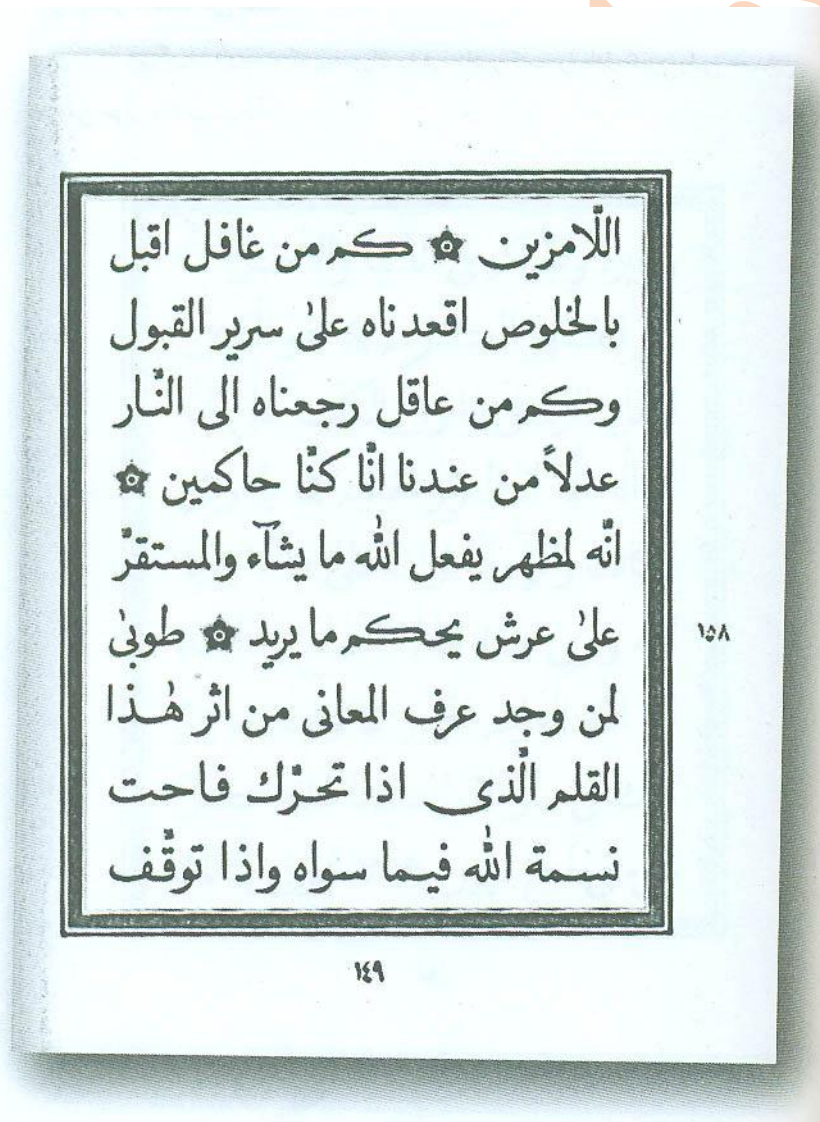 اللّامزين ۞ كم من غافل اقبل
بالخلوص اقعدناه علىٰ سرير القبول
وكم من عاقل رجعناه الى النّار
عدلاً من عندنا انّا كنّا حاكمين ۞
انّه لمظهر يفعل اللّٰه ما يشآء والمستقرّ
علىٰ عرش يحكم ما يريد ۞ طوبىٰ
١٥٨
لمن وجد عرف المعانى من اثر هٰذا
القلم الّذى اذا تحرّك فاحت
نسمة اللّٰه فيما سواه واذا توقّف
١٤٩